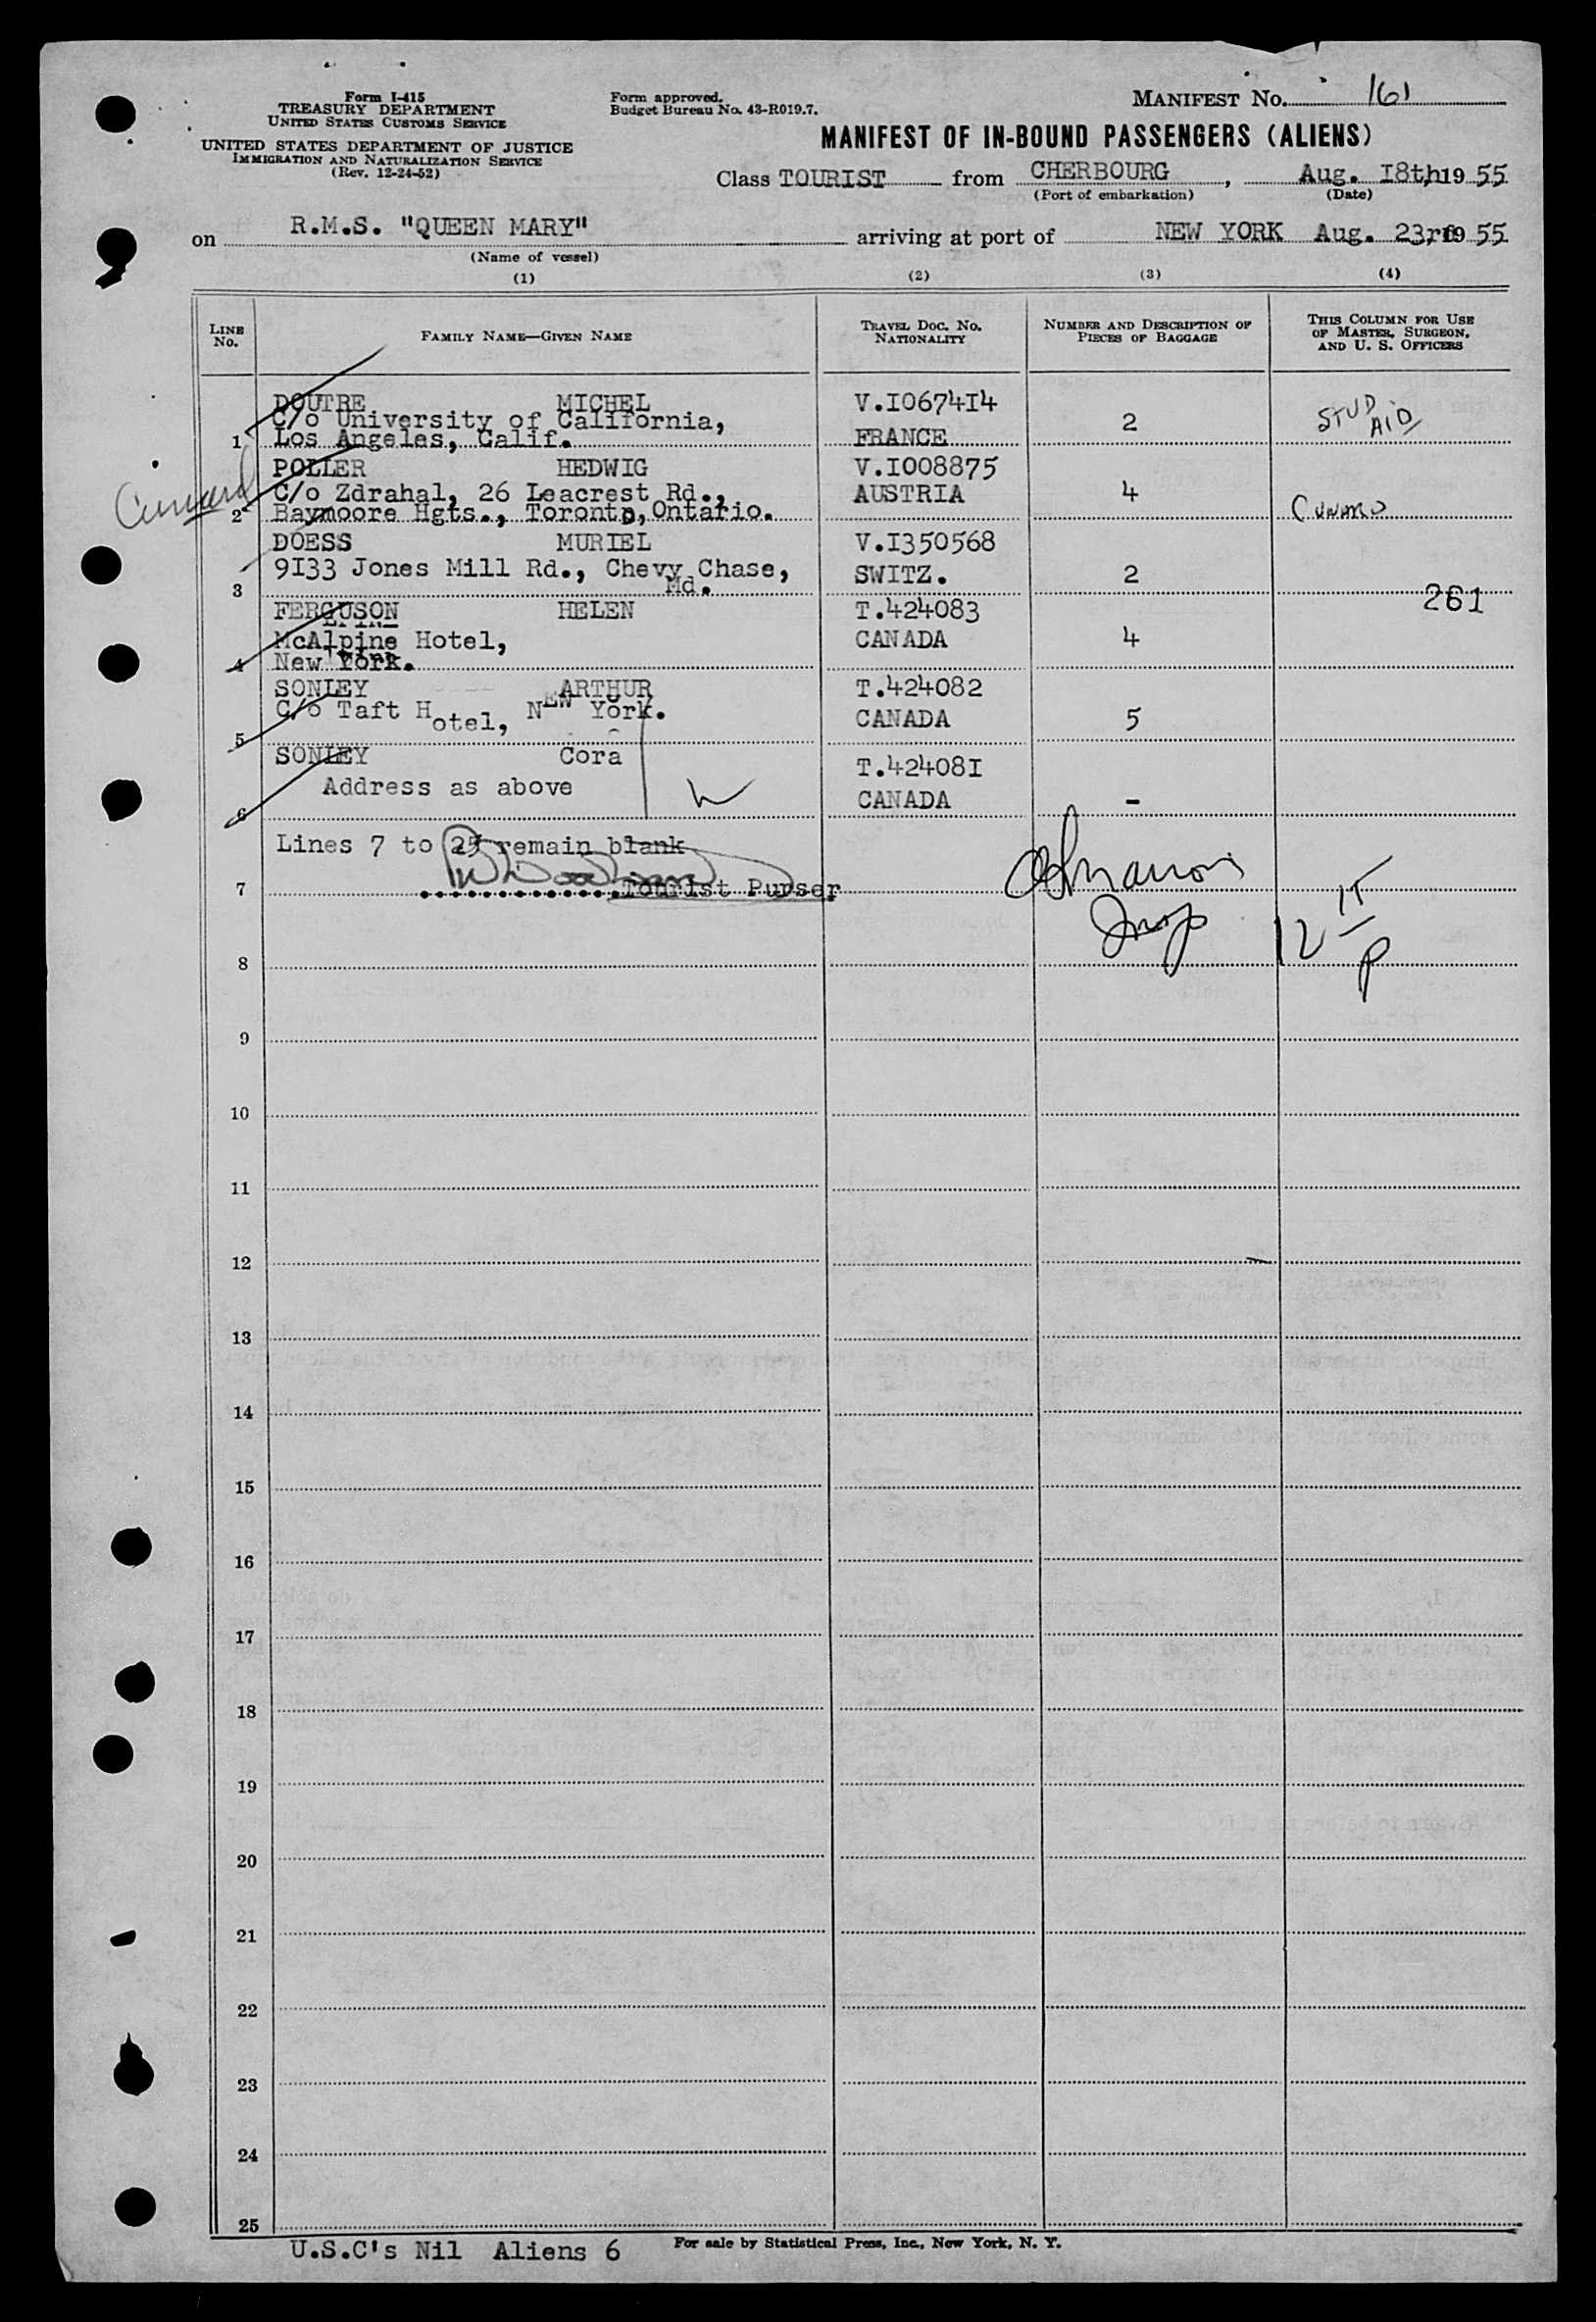 Form I-415
TREASURY DEPARTMENT
UNITED STATES CUSTOMS SERVICE
UNITED STATES DEPARTMENT OF JUSTICE
IMMIGRATION AND NATURALIZATION SERVICE
(Rev. 12-24-52)
Form approved.
Budget Bureau No. 43-R019.7.
MANIFEST NO. 161
MANIFEST OF IN-BOUND PASSENGERS (ALIENS)
Class TOURIST from CHERBOURG, Aug. I8th, 19 55
(Port of embarkation) (Date)
on R.M.S. "QUEEN MARY" arriving at port of NEW YORK Aug. 23rd, 19 55
(Name of vessel)
(1) (2) (3) (4)
LINE No. FAMILY NAME—GIVEN NAME TRAVEL DOC. NO. NATIONALITY NUMBER AND DESCRIPTION OF PIECES OF BAGGAGE THIS COLUMN FOR USE OF MASTER, SURGEON, AND U. S. OFFICERS
DOUTRE MICHEL V.I0674I4
C/o University of California, 2 STUD AID
1 Los Angeles, Calif. FRANCE
POLLER HEDWIG V.I008875
Cunard C/o Zdrahal, 26 Leacrest Rd., AUSTRIA 4
2 Baymoore Hgts., Toronto, Ontario. CUNARD
DOESS MURIEL V.I350568
9I33 Jones Mill Rd., Chevy Chase, SWITZ. 2
3 Md. 261
FERGUSON HELEN T.424083
McAlpine Hotel, CANADA 4
4 New York.
SONLEY ARTHUR T.424082
C/o Taft Hotel, NEW York. CANADA 5
5
SONLEY Cora T.42408I
Address as above CANADA -
6
Lines 7 to 25 remain blank
7 Tourist Purser
Insp 12 15/P
8
9
10
11
12
13
14
15
16
17
18
19
20
21
22
23
24
25
U.S.C's Nil Aliens 6 For sale by Statistical Press, Inc., New York, N. Y.